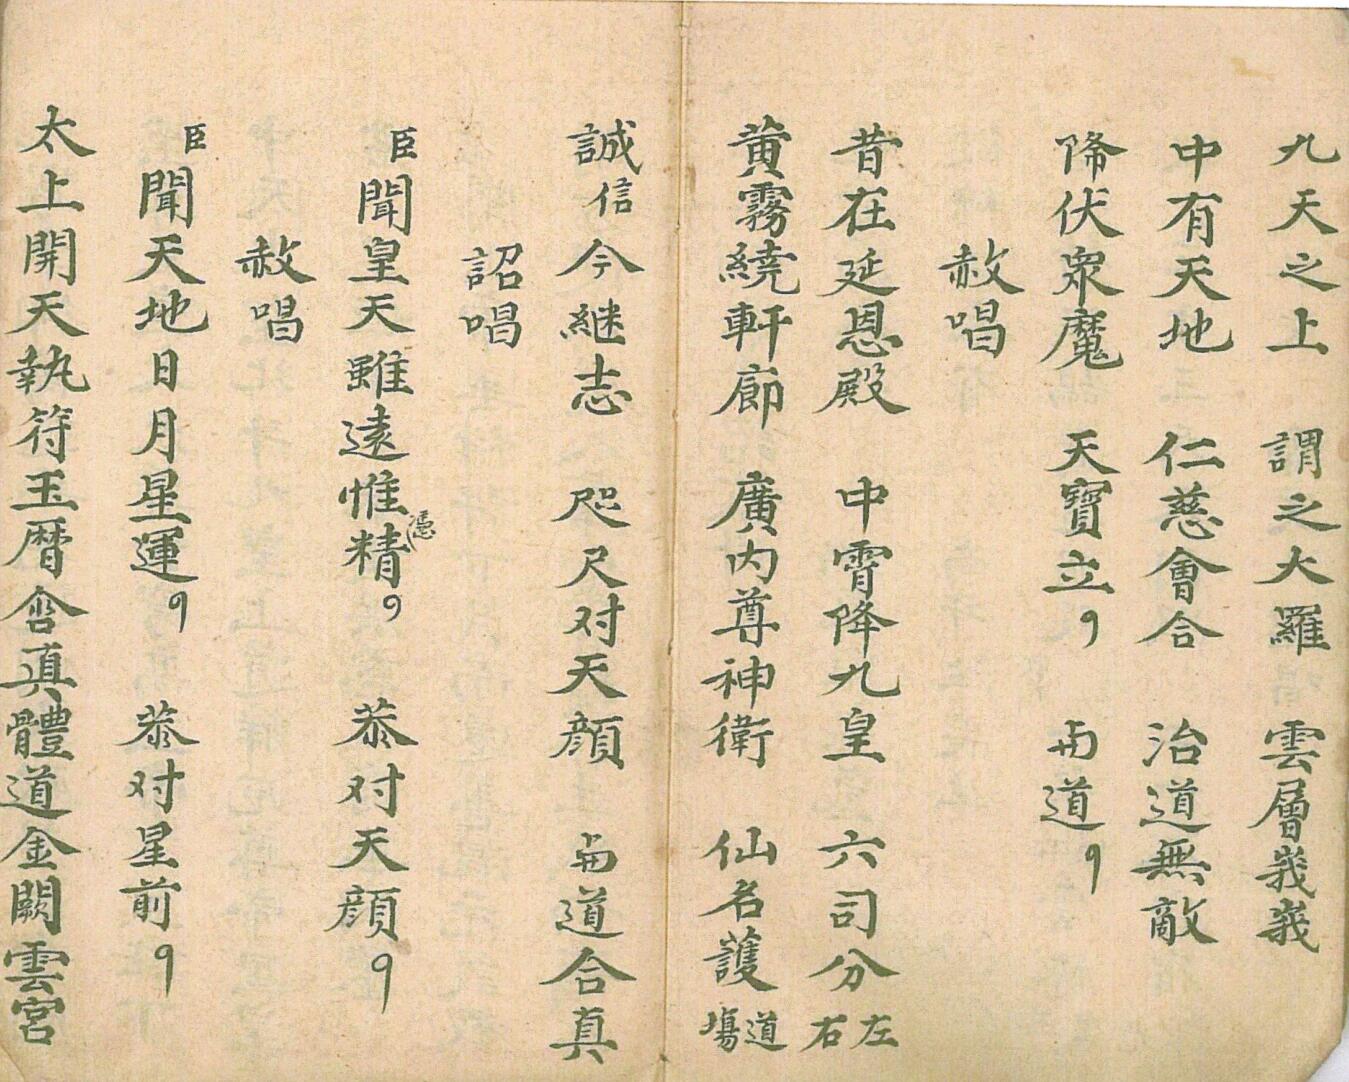 九天之上 謂之大羅 雲層峩峩
中有天地 仁慈會合 治道無敵
降伏衆魔 天寶立9 与道9
赦唱
昔在延恩殿 中霄降九皇 六司分左右
黄霧繞軒廊 廣内尊神衛 仙名護道塲
誠信今継志 咫尺对天顔 与道合真
詔唱
臣聞皇天雖遠惟精憑9 恭对天顔9
赦唱
臣聞天地日月星運9 恭对星前9
太上開天執符玉曆含真體道金闕雲宮